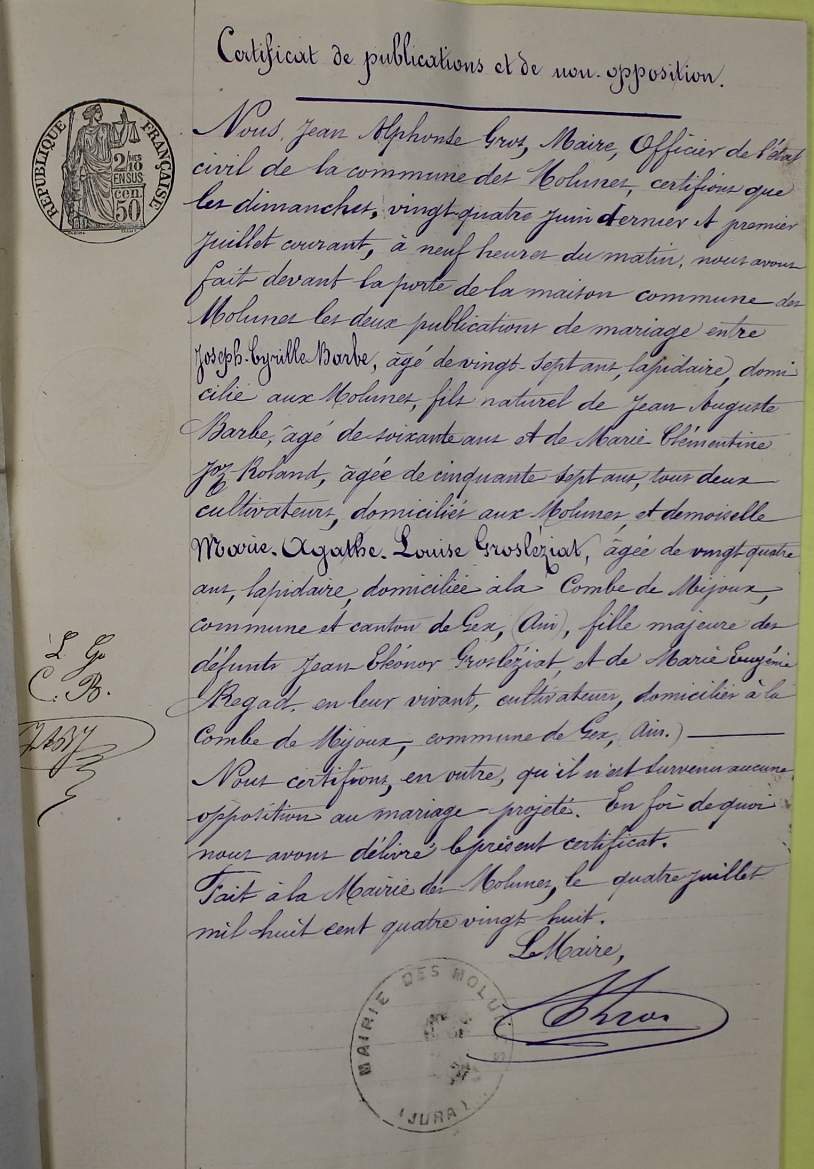 Certificat de publications et de non-opposition.
RÉPUBLIQUE FRANÇAISE
2/10 MES
EN SUS
50 cen
Nous, Jean Alphonse Gros, Maire, Officier de l'état
civil de la commune des Molunes, certifions que
les dimanches, vingt-quatre juin dernier et premier
juillet courant, à neuf heures du matin, nous avons
fait devant la porte de la maison commune des
Molunes les deux publications de mariage entre
Joseph-Cyrille Barbe, âgé de vingt-sept ans, lapidaire, domi
cilié aux Molunes, fils naturel de Jean Auguste
Barbe, âgé de soixante ans et de Marie Clémentine
Joz-Roland, âgée de cinquante sept ans, tous deux
cultivateurs, domiciliés aux Molunes, et demoiselle
Marie-Agathe-Louise Grosléziat, âgée de vingt quatre
ans, lapidaire, domiciliée à la Combe de Mijoux,
commune et canton de Gex, (Ain), fille majeure des
défunts Jean Eléonor Grosléziat, et de Marie Eugénie
Regad, en leur vivant, cultivateurs, domiciliés à la
Combe de Mijoux, commune de Gex, Ain.)
Nous certifions, en outre, qu'il n'est survenu aucune
opposition au mariage projeté. En foi de quoi
nous avons délivré le présent certificat.
Fait à la Mairie des Molunes, le quatre juillet
mil huit cent quatre vingt huit.
Le Maire,
Gros
L. G.
C. B.
MAIRIE DES MOLUNES
(JURA)